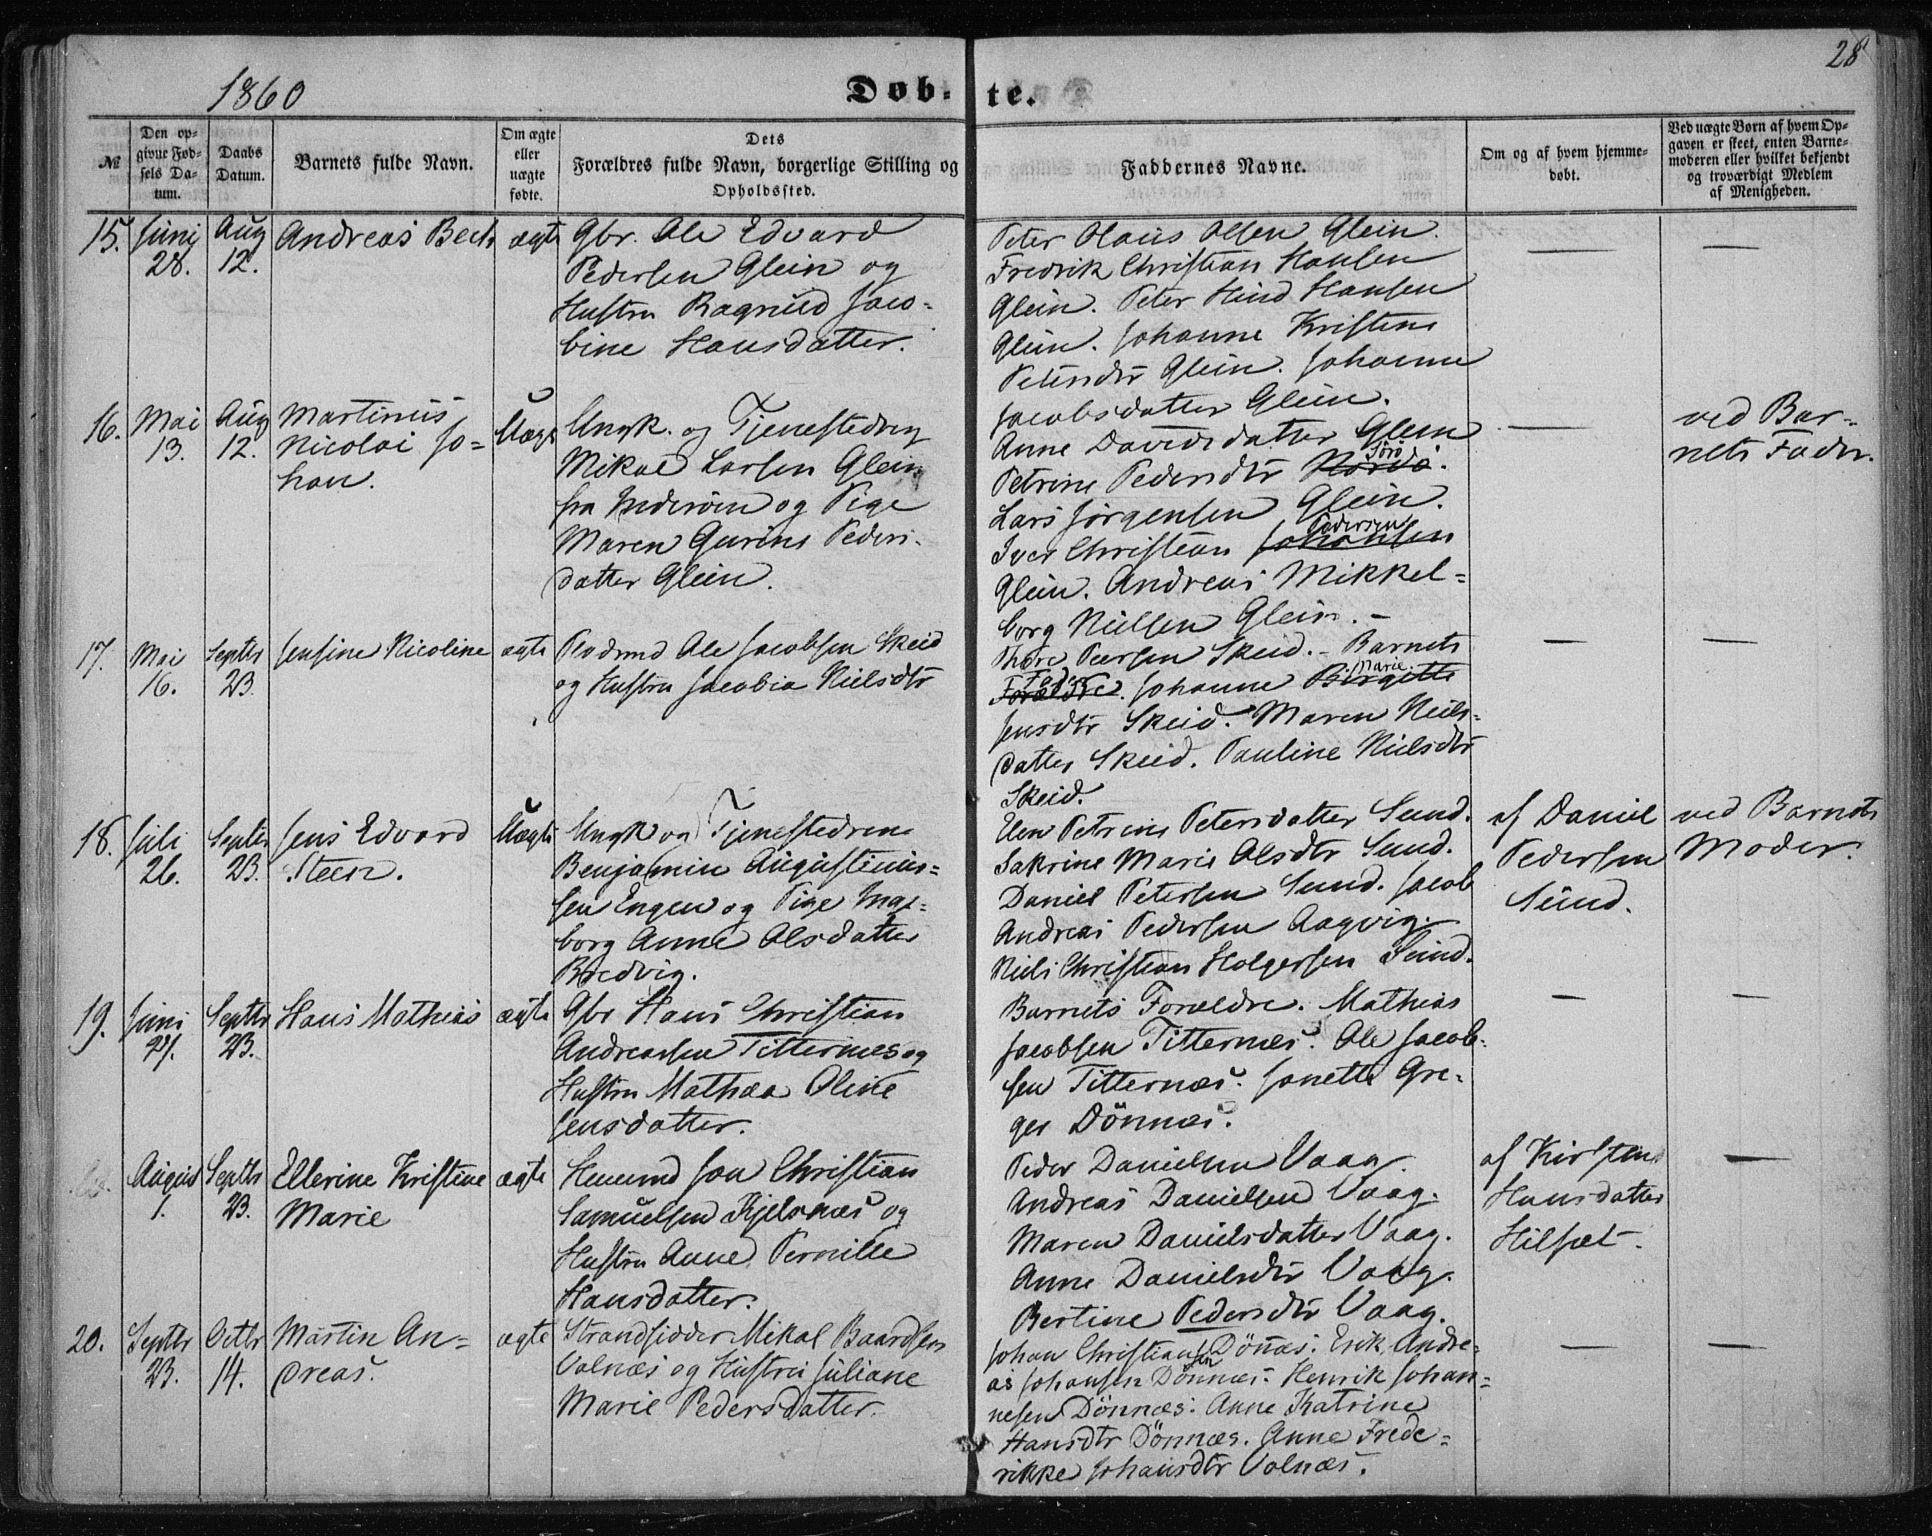 1860
Døb-
te.
28
№
Den op-
givne Fød-
sels Da-
tum.
Daabs
Datum.
Barnets fulde Navn.
Om ægte
eller
uægte
fødte.
Dets
Forældres fulde Navn, borgerlige Stilling og
Opholdssted.
Faddernes Navne.
Om og af hvem hjemme-
døbt.
Ved uægte Børn af hvem Op-
gaven er skeet, enten Barne-
moderen eller hvilket bekjendt
og troværdigt Medlem
af Menigheden.
15. Junj
28.
Aug
12.
Andreas Beck
ægte
Gbr. Ole Edvard
Pedersen Glein og
Hustru Ragnild Jaco-
bine Hansdatter.
Peter Olaus Olsen Glein.
Fredrik Christian Hansen
Glein. Peter Hind Hansen
Glein. Johanne Kristine
Petersdtr Glein. Johanne
Jacobsdatter Glein.
—
—
16. Mai
13.
Aug
12.
Martinus
Nicolai Jo-
han.
Uægte
Ungk. og Tjenestedreng
Mikal Larsen Glein
fra Inderøen og Pige
Maren Gurine Peders-
datter Glein.
Anne Davidsdatter Glein
Petrine Pedersdtr Nordø Sørø.
Lars Jørgensen Glein.
Iver Christian Johansen Pedersen
Glein. Andreas Mikkel-
borg Nielsen Glein. -
—
ved Bar-
nets Fader.
17. Mai
16.
Septbr
23.
Jensine Nicoline
ægte
Pladsmd Ole Jacobsen Skeid
og Hustru Jacobia Nielsdtr
Thore Peersen Skeid. - Barnets
Forældre Fader. Johanne Birgitte Marie
Jensdtr Skeid. Maren Niels-
datter Skeid. Pauline Nielsdtr
Skeid.
—
—
18. Juli
26.
Septbr
23.
Jens Edvard
Steen.
Uægte
Ungk og Tjenestedreng
Benjamin Augustinus-
sen Engen og Pige Inge-
borg Anne Olsdatter
Bredvig.
Elen Petrine Petersdatter Sund.
Sakrine Marie Olsdtr Sund.
Daniel Petersen Sund. Jacob
Andreas Pedersen Aagvig.
Niels Christian Holgersen Sund.
af Daniel
Pedersen
Sund.
ved Barnets
Moder.
19. Juni
21.
Septbr
23.
Hans Mathias
ægte
Gbr Hans Christian
Andreassen Titternæs og
Hustru Mathea Oline
Jensdatter.
Barnets Forældre. Mathias
Jacobsen Titternæs. Ole Jacob-
sen Titternæs. Janette Gre-
ger Dönnæs.
—
—
August
1.
Septbr
23.
Ellerine Kristine
Marie
ægte
Huusmd Jon Christian
Samuelsen Kjelsnæs og
Hustru Anne Pernille
Hansdatter.
Peder Danielsen Vaag.
Andreas Danielsen Vaag.
Maren Danielsdatter Vaag.
Anne Danielsdtr Vaag.
Bertine Pedersdtr Vaag.
af Kirstine
Hansdatter
Hilsæt.
—
20. Septbr
23.
Octbr
14.
Martin An-
dreas.
ægte
Strandsidder Mikal Baardsen
Valnæs og Hustru Juliane
Marie Pedersdatter.
Johan Christiansen Dönnæs. Erik Andre-
as Johansen Dönnæs. Henrik Johan-
nesen Dönnæs. Anne Katrine
Hansdtr Dönnæs. Anne Frede-
rikke Johansdtr Valnæs.
—
—